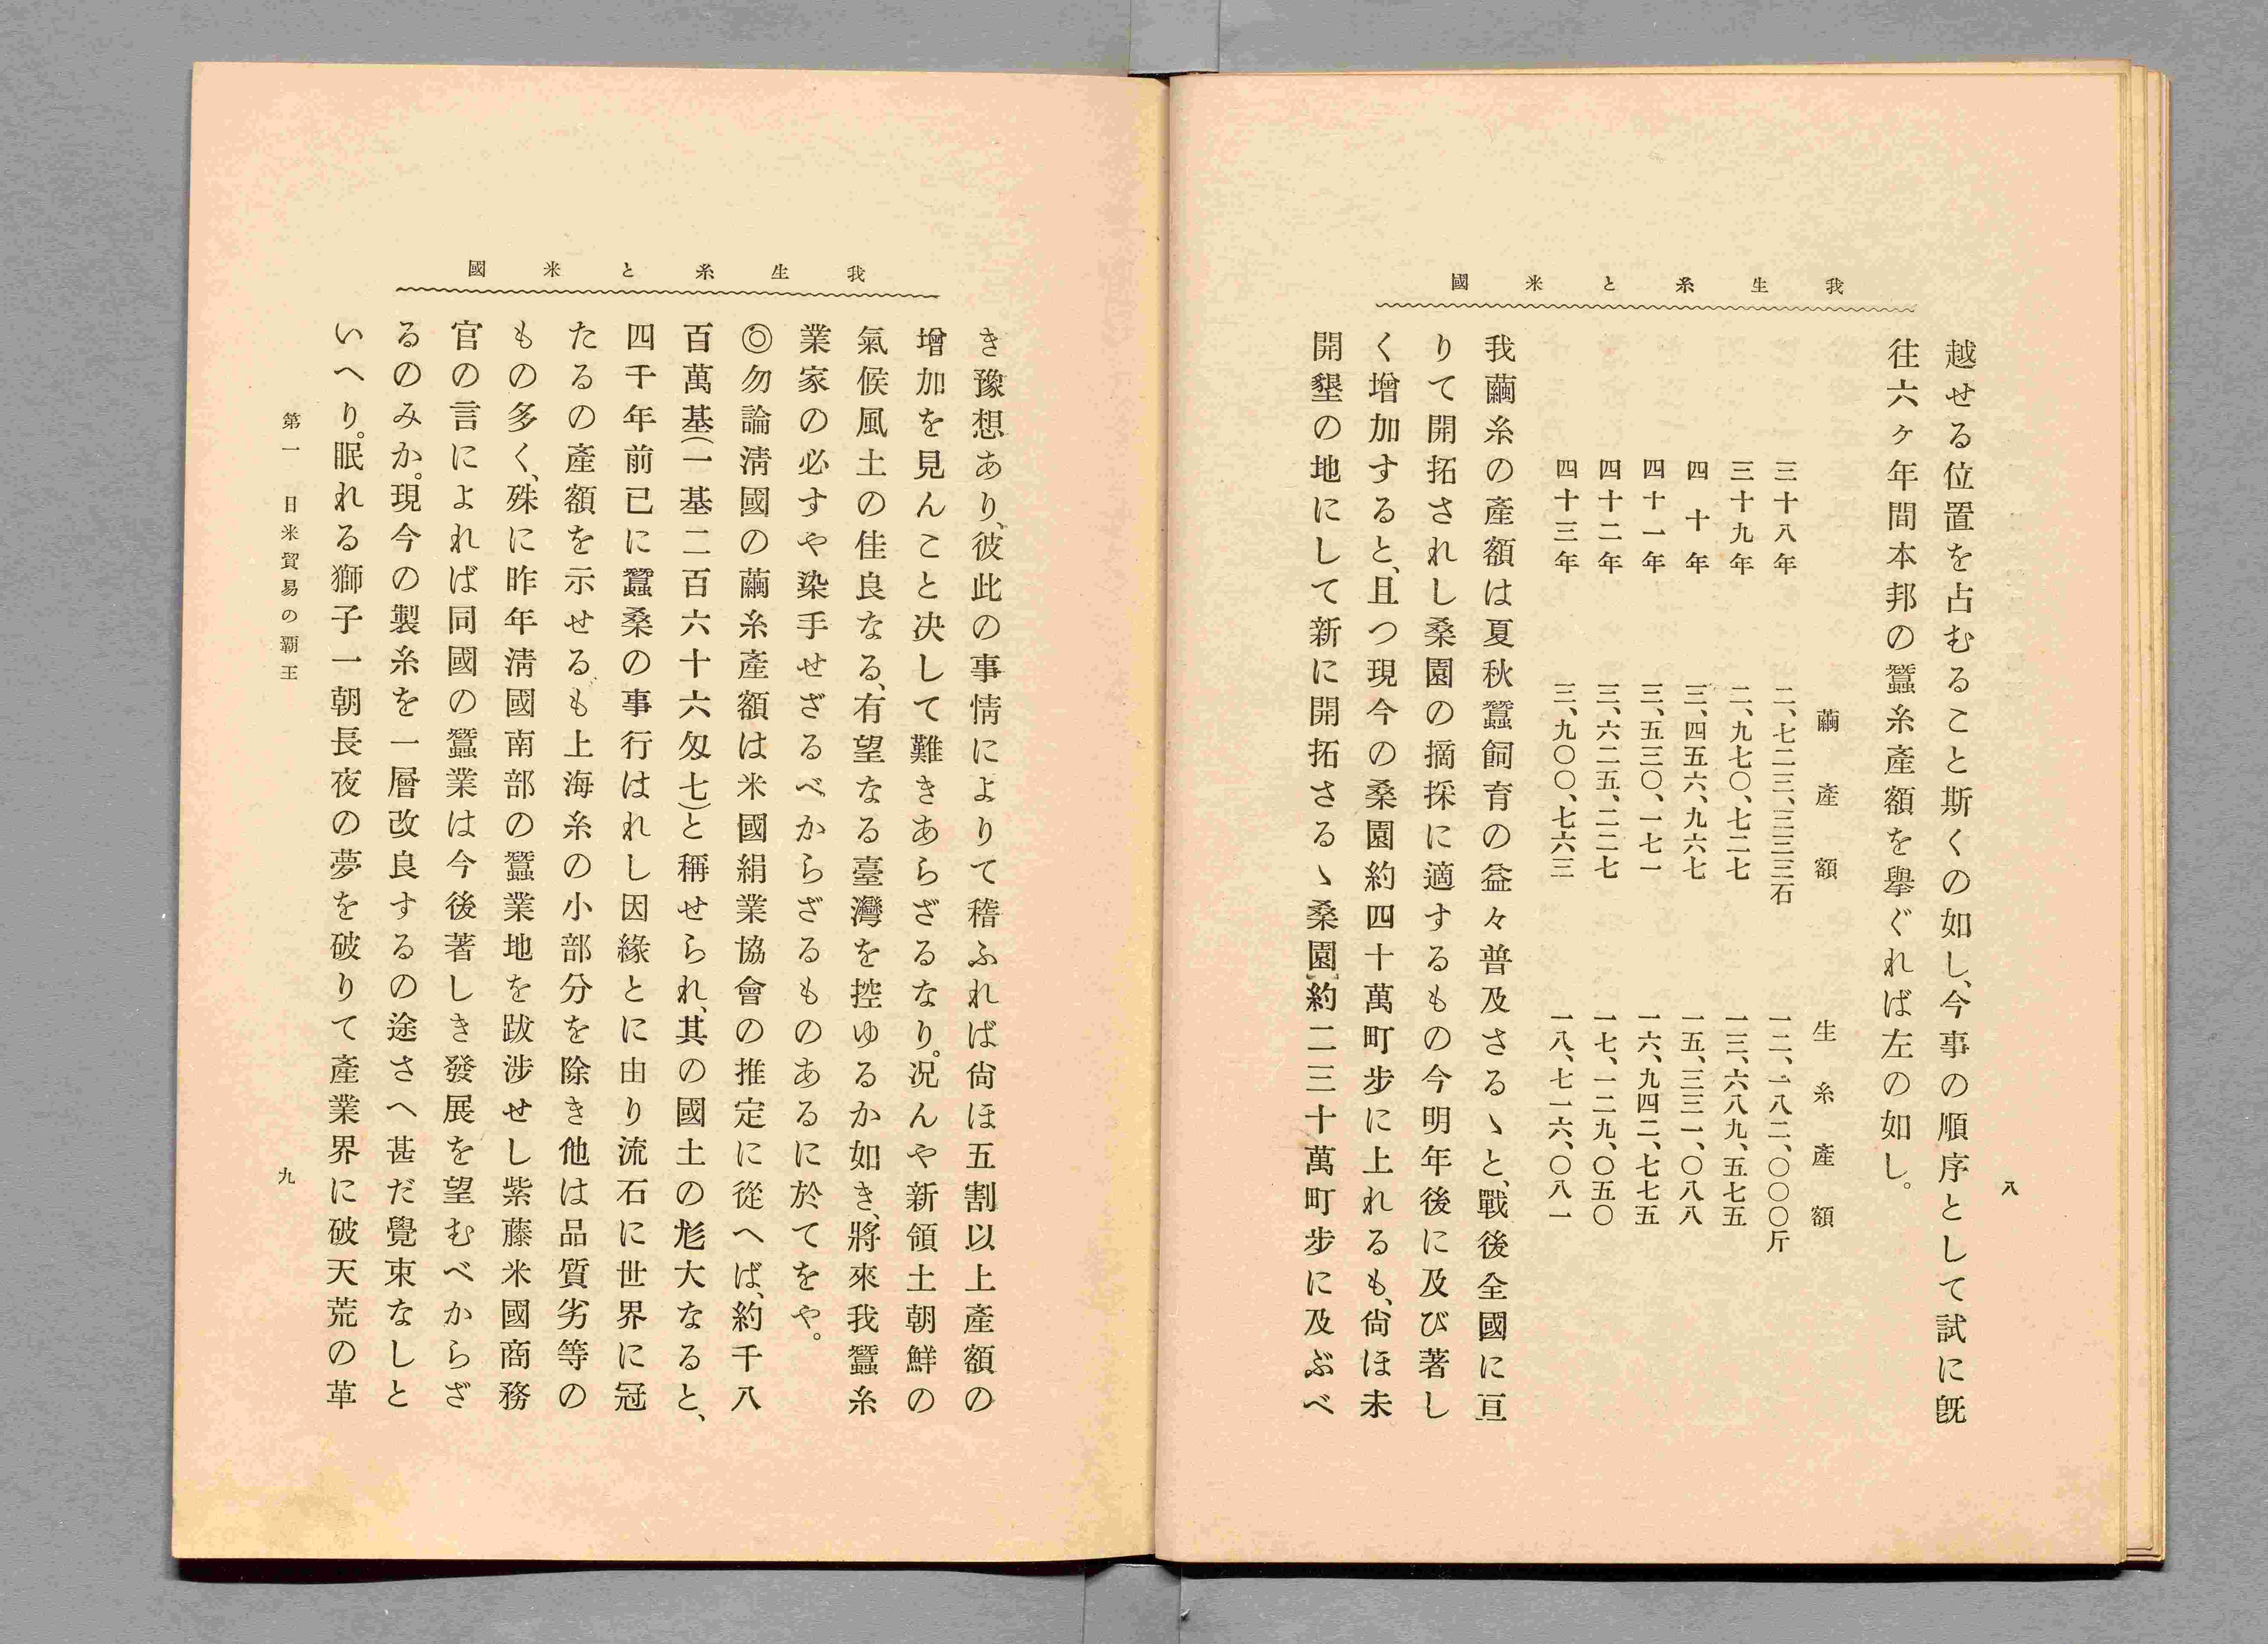 我生糸と米國
八
越せる位置を占むること斯くの如し、今事の順序として試に既
往六ヶ年間本邦の蠶糸產額を擧ぐれば左の如し。
繭產額　生糸產額
三十八年　二、七二三、三三三石　一二、一八二、〇〇〇斤
三十九年　二、九七〇、七二七　一三、六八九、五七五
四十年　三、四五六、九六七　一五、三三一、〇八八
四十一年　三、五三〇、一七一　一六、九四二、七七五
四十二年　三、六二五、二二七　一七、一二九、〇五〇
四十三年　三、九〇〇、七六三　一八、七一六、〇八一
我繭糸の產額は夏秋蠶飼育の益々普及さるゝと、戰後全國に亘
りて開拓されし桑園の摘採に適するもの今明年後に及び著し
く增加すると、且つ現今の桑園約四十萬町步に上れるも、尙ほ未
開墾の地にして新に開拓さるゝ桑園約二三十萬町步に及ぶべ
我生糸と米國
き豫想あり、彼此の事情によりて稽ふれば尙ほ五割以上產額の
增加を見んこと决して難きあらざるなり。况んや新領土朝鮮の
氣候風土の佳良なる、有望なる臺灣を控ゆるか如き、將來我蠶糸
業家の必すや染手せざるべからざるものあるに於てをや。
◎勿論淸國の繭糸產額は米國絹業協會の推定に從へば、約千八
百萬基(一基二百六十六匁七)と稱せられ、其の國土の尨大なると、
四千年前已に蠶桑の事行はれし因緣とに由り流石に世界に冠
たるの產額を示せるも上海糸の小部分を除き他は品質劣等の
もの多く、殊に昨年淸國南部の蠶業地を跋涉せし紫藤米國商務
官の言によれば同國の蠶業は今後著しき發展を望むべからざ
るのみか。現今の製糸を一層改良するの途さへ甚だ覺束なしと
いへり。眠れる獅子一朝長夜の夢を破りて產業界に破天荒の革
第一　日米貿易の覇王
九